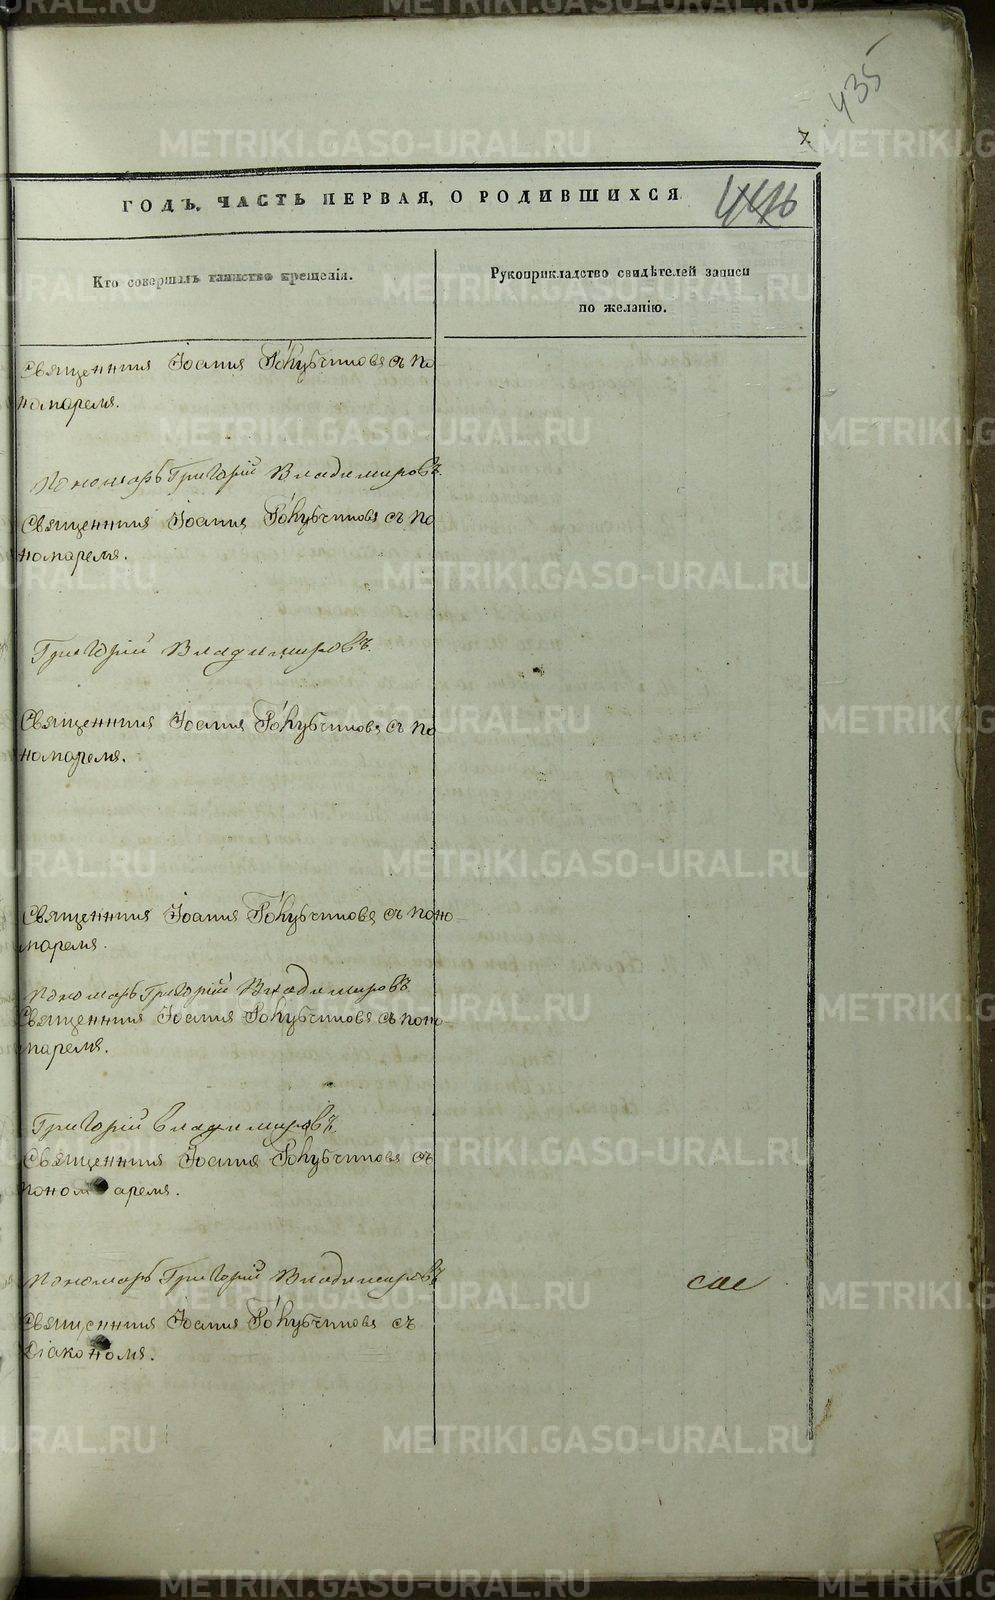 435
7.
ГОДЪ. ЧАСТЬ ПЕРВАЯ, О РОДИВШИХСЯ
Кто совершалъ таинство крещенія.
Рукоприкладство свидѣтелей записи
по желанію.
Священникъ Іоаннъ съ по
номаремъ.
Пономарь Григорій Владимировъ
Священникъ Іоаннъ съ по
номаремъ.
Григорій Владимировъ
Священникъ Іоаннъ съ по
номаремъ.
Священникъ Іоаннъ съ поно-
маремъ.
Пономарь Григорій Владимировъ
Священникъ Іоаннъ съ поно-
маремъ.
Григорій Владимировъ
Священникъ Іоаннъ съ
пономаремъ.
Пономарь Григорій Владимировъ
Священникъ Іоаннъ съ
діакономъ.
METRIKI.GASO-URAL.RU